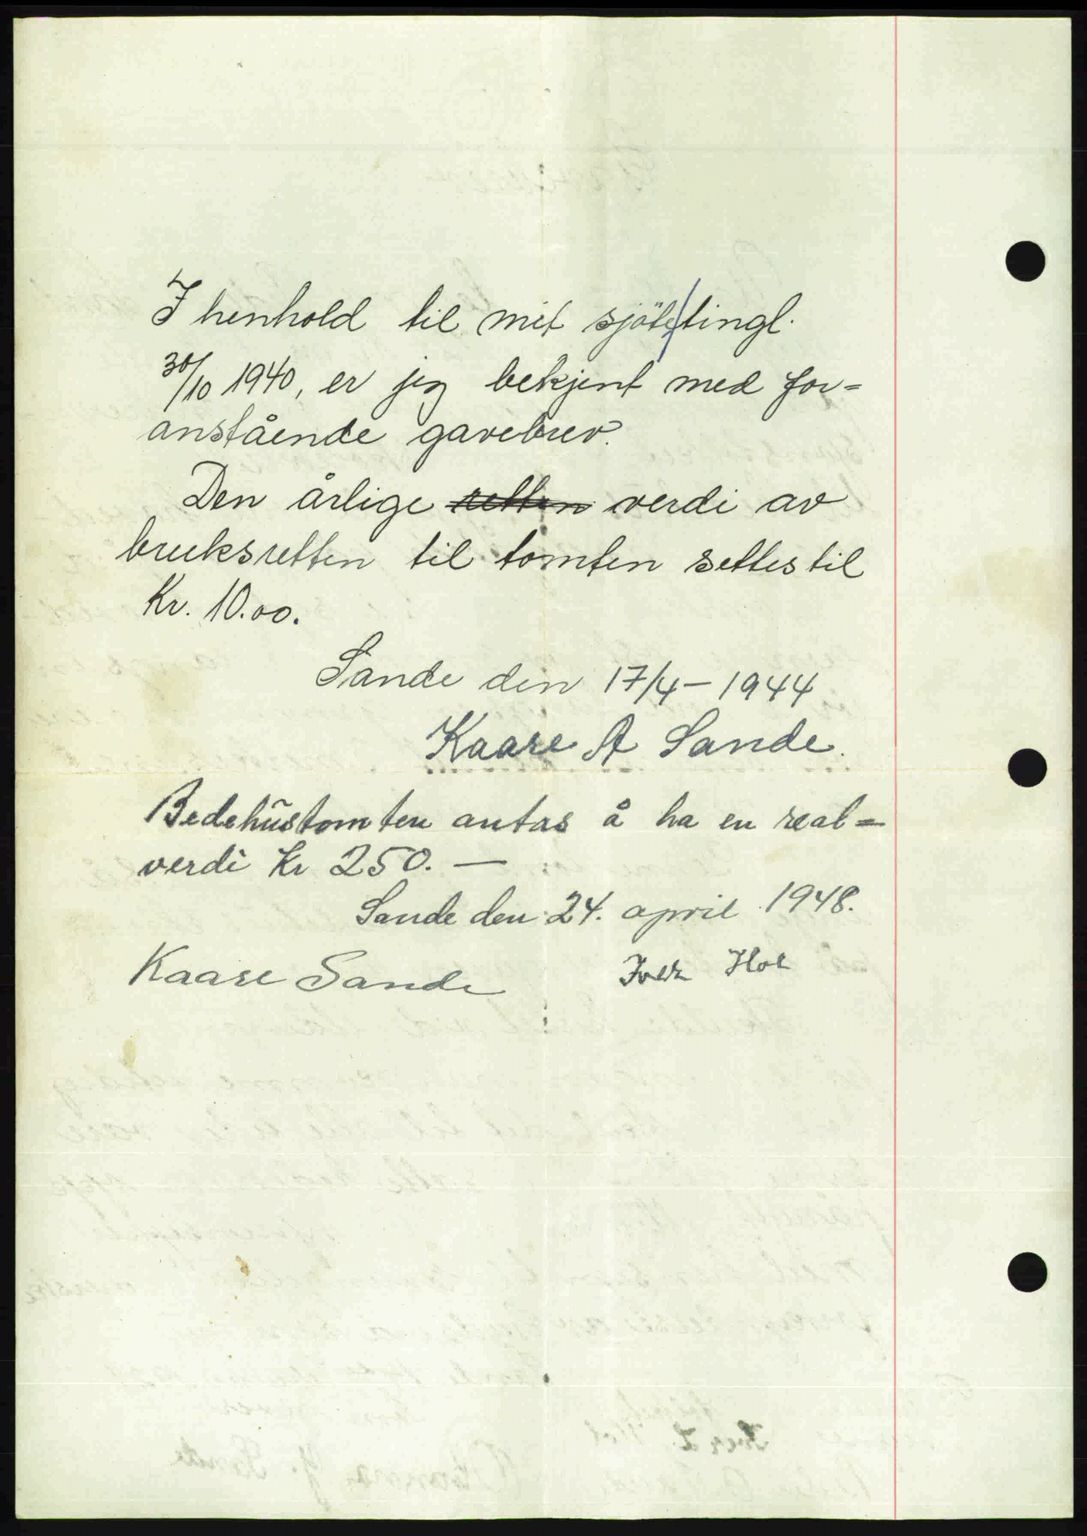 I henhold til mit sjöte tingl.
30/10 1940, er jeg bekjent med for=
anstående gavebrev.
Den årlige retten verdi av
bruksretten til tomten settes til
Kr. 10.00.
Sande den 17/4 – 1944
Kaare A Sande.
Bedehustomten antas å ha en real=
verdi Kr 250. —
Sande den 24. april 1948.
Kaare Sande Hol